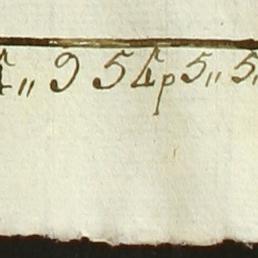 4„ 9 54p 5„ 5„